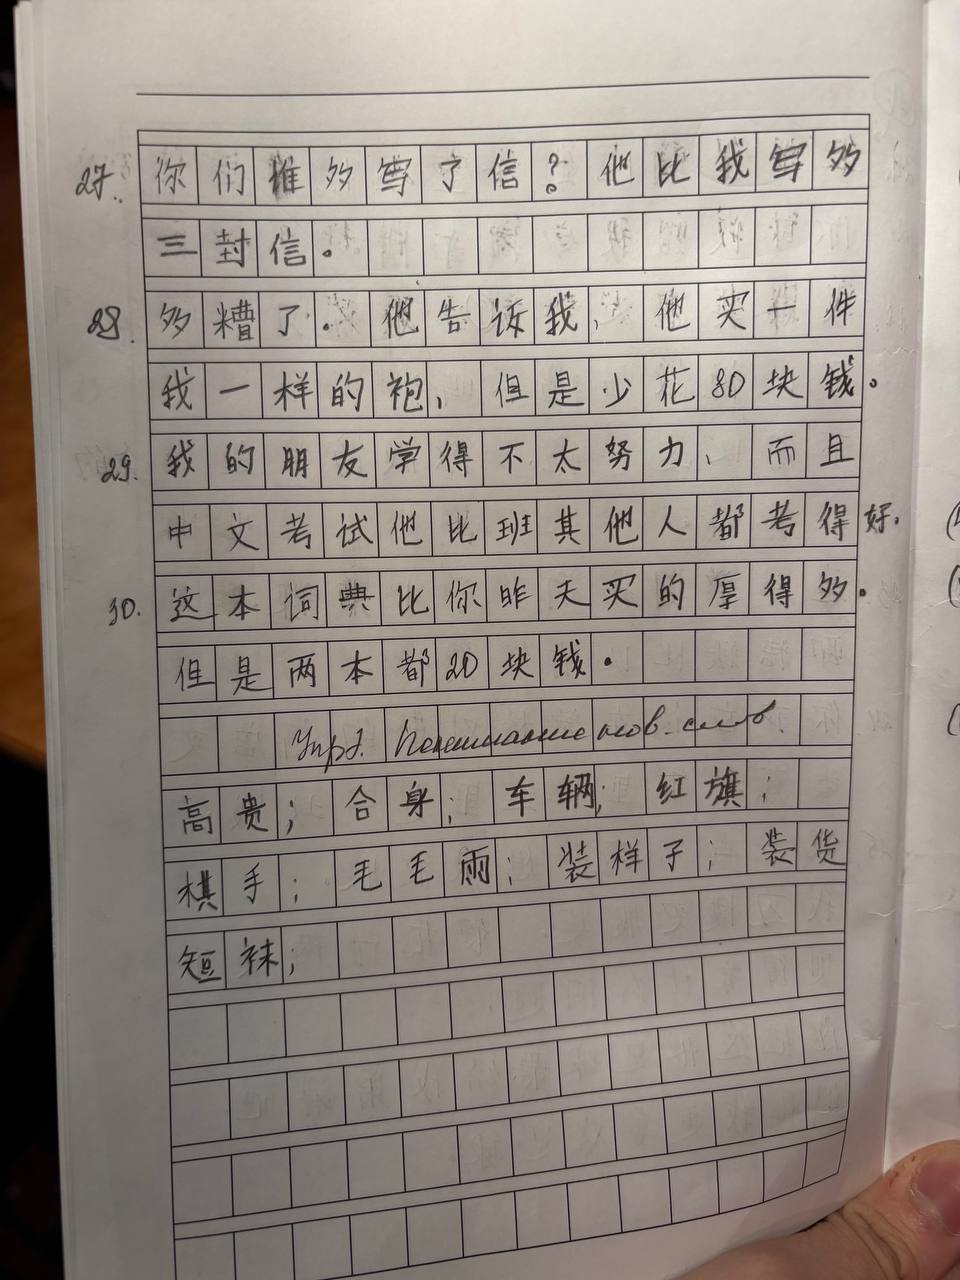 27. 你们推多写了信？他比我写多
三封信。
28. 多糟了。他告诉我，他买一件
我一样的袍，但是少花80块钱。
29. 我的朋友学得不太努力，而且
中文考试他比班其他人都考得好.
30. 这本词典比你昨天买的厚得多.
但是两本都20块钱.
Упр2. Понимание нов. слов
高贵；合身；车辆；红旗；
棋手；毛毛雨；装样子；装货
短袜；